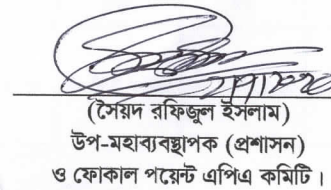 (সৈয়দ রফিজুল ইসলাম)
উপ-মহাব্যবস্থাপক (প্রশাসন)
ও ফোকাল পয়েন্ট এপিএ কমিটি।